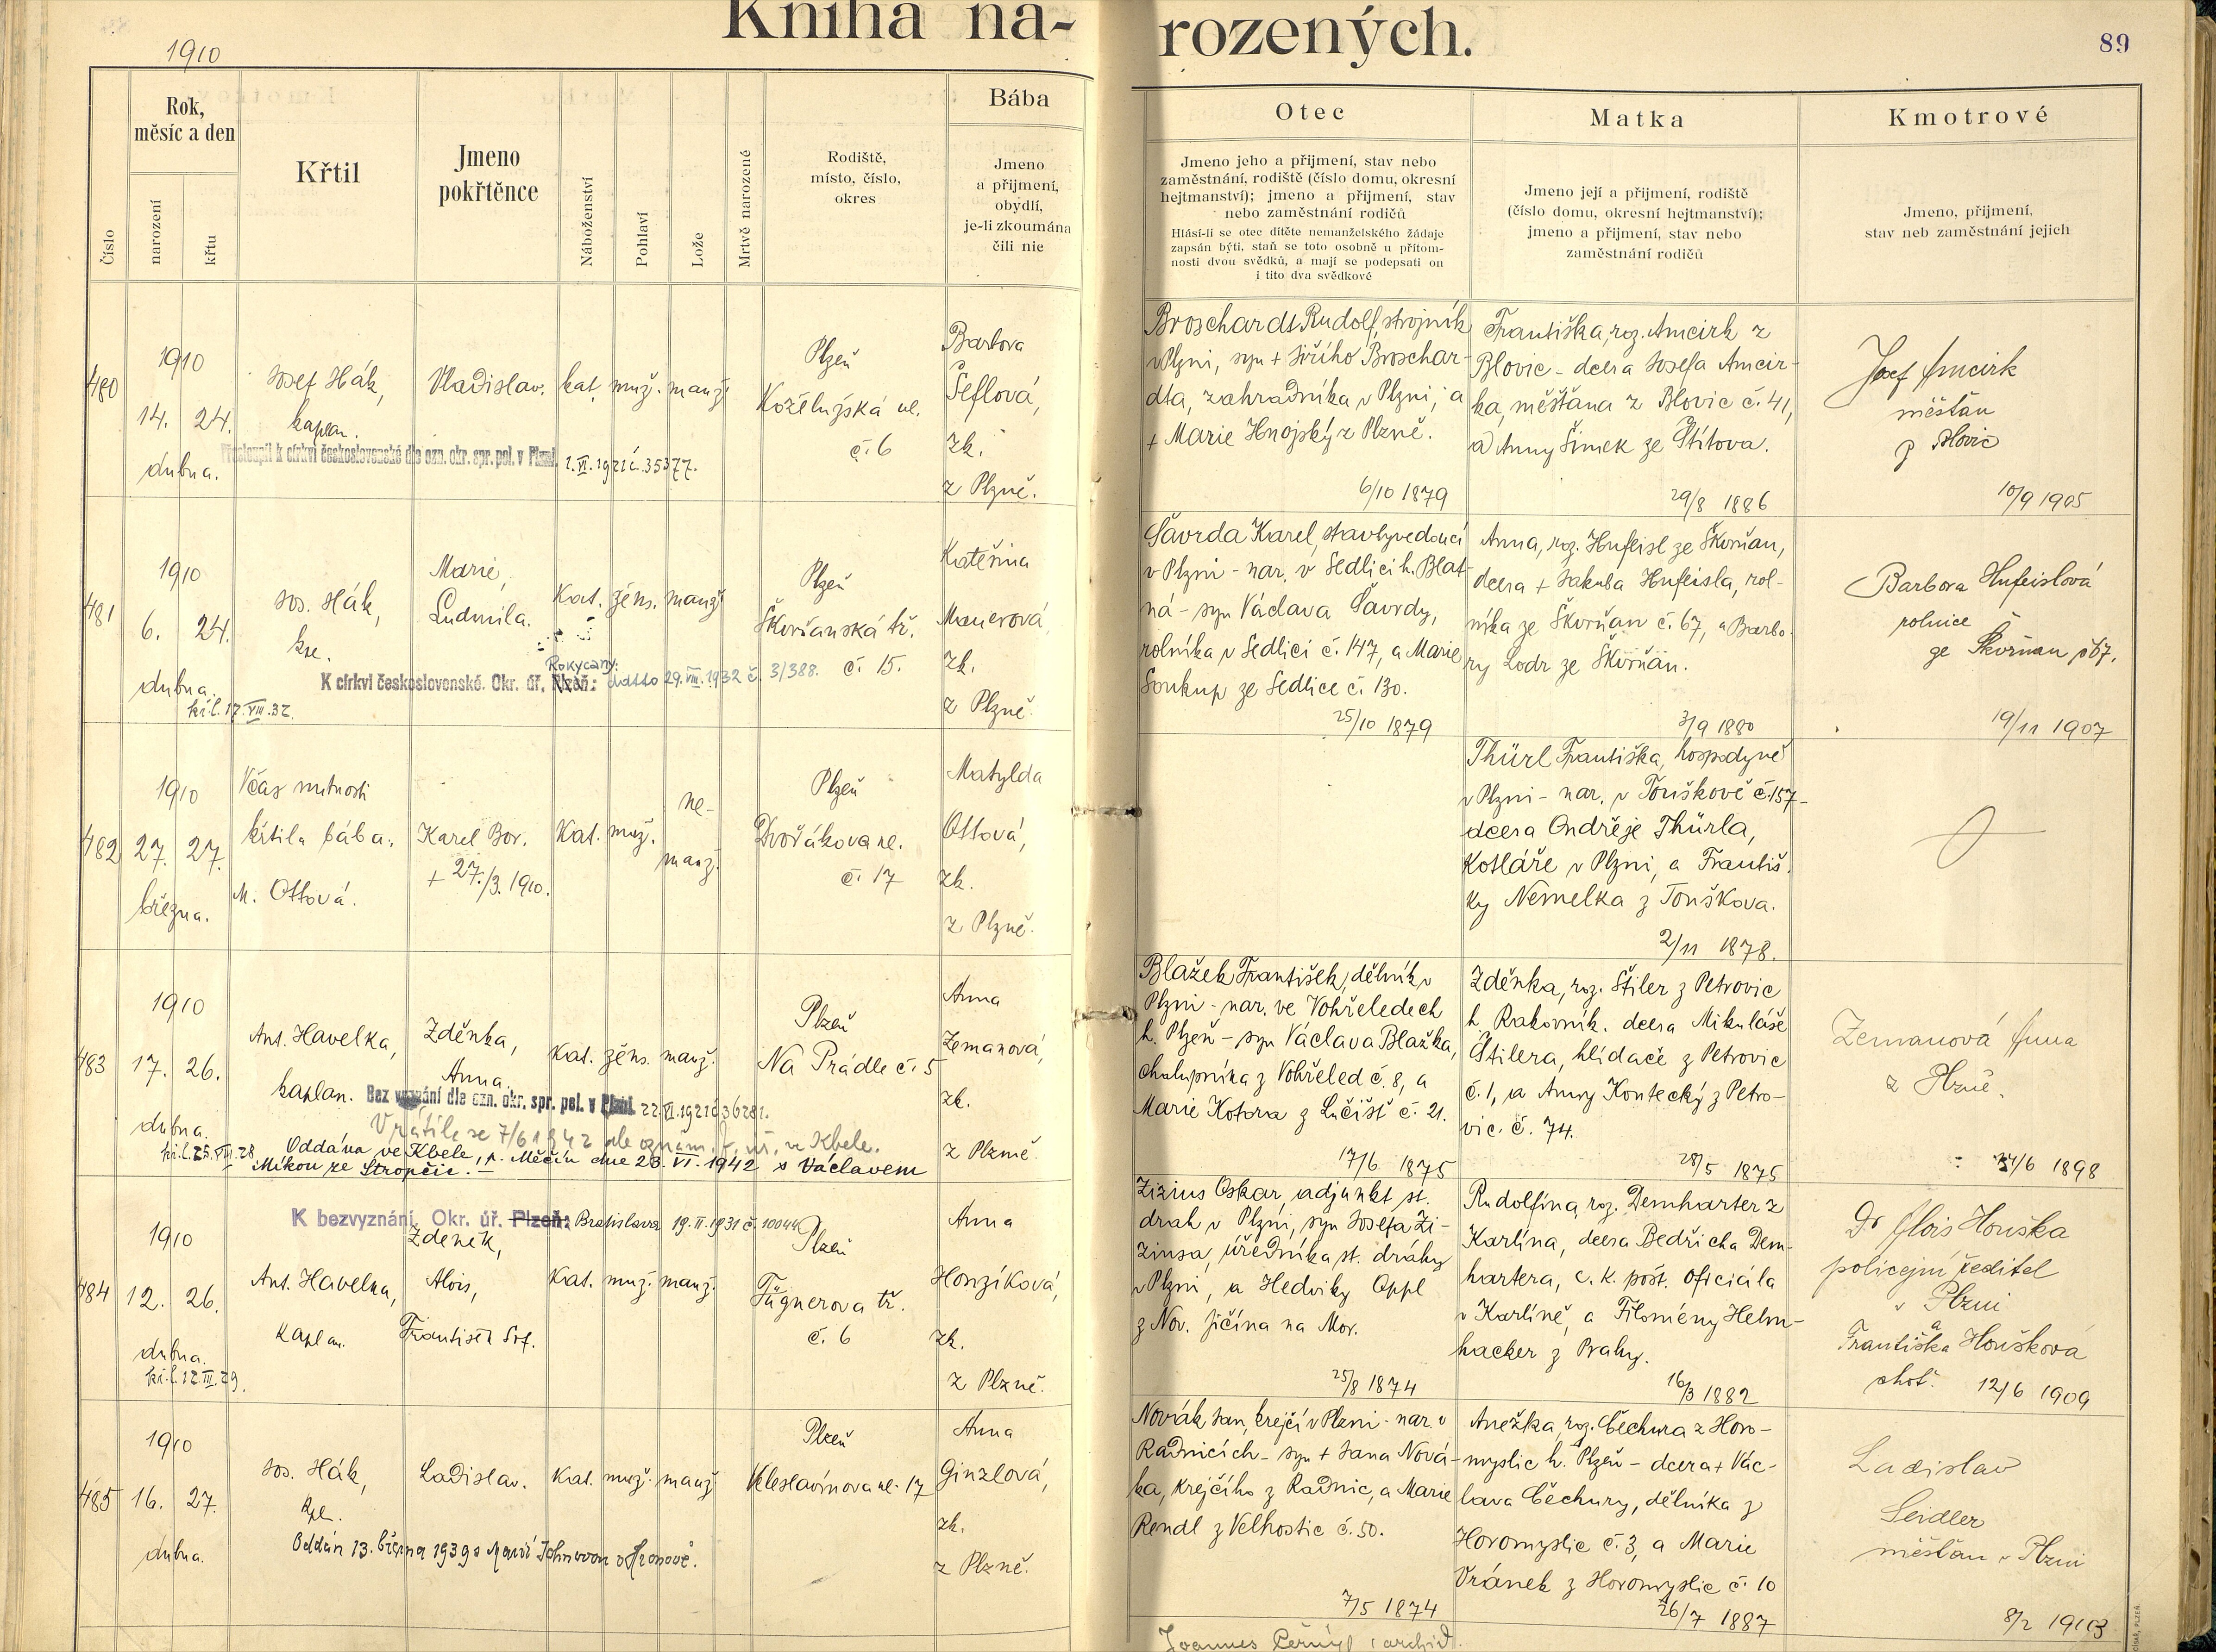 Kniha na-
rozených.
89
1910
Číslo
Rok,
měsíc a den
narození
křtu
Křtil
Jmeno
pokřtěnce
Náboženství
Pohlaví
Lože
Mrtvě narozené
Rodiště,
místo, číslo,
okres
Bába
Jmeno
a přijmení,
obydlí,
je-li zkoumána
čili nic
Otec
Jmeno jeho a přijmení, stav nebo
zaměstnání, rodiště (číslo domu, okresní
hejtmanství); jmeno a přijmení, stav
nebo zaměstnání rodičů
Hlásí-li se otec dítěte nemanželského žádaje
zapsán býti, staň se toto osobně u přítom-
nosti dvou svědků, a mají se podepsati on
i tito dva svědkové
Matka
Jmeno její a přijmení, rodiště
(číslo domu, okresní hejtmanství);
jmeno a přijmení, stav nebo
zaměstnání rodičů
Kmotrové
Jmeno, přijmení,
stav neb zaměstnání jejich
480
1910
14. 24.
dubna.
Josef Hák,
kaplan.
Vladislav.
kat. muž. manž.
Plzeň
Koželužská ul.
č. 6
Barbora
Šeflová,
zk.
z Plzně.
Přestoupil k církvi československé dle ozn. okr. spr. pol. v Plzni. 1.VI.1921 č.35377.
Broschardt Rudolf, strojník
v Plzni, syn + Jiřího Broschar-
dta, zahradníka v Plzni, a
+ Marie Hnojský z Plzně.
6/10 1879
Františka, roz. Amcirk z
Blovic - dcera Josefa Amcir-
ka, měšťana z Blovic č. 41,
a Anny Šimek ze Štítova.
29/8 1886
Josef Amcirk
měšťan
z Blovic
10/9 1905
481
1910
6. 24.
dubna.
kř.l. 17.VIII.32.
Jos. Hák,
Marie,
Ludmila.
Kat. žens. manž.
Plzeň
Škvrňanská tř.
č. 15.
Kateřina
Mauerová,
zk.
z Plzně.
Rokycany:
K církvi československé. Okr. úř. Plzeň: 29.VIII.1932 č. 31388.
Šavrda Karel, stavbyvedoucí
v Plzni - nar. v Sedlici h. Blat-
ná - syn Václava Šavrdy,
rolníka v Sedlici č. 147, a Marie
Soukup ze Sedlice č. 130.
25/10 1879
Anna, roz. Hufeisl ze Škvrňan,
dcera + Jakuba Hufeisla, rol-
níka ze Škvrňan č. 67, a Barbo-
ry Lodr ze Škvrňan.
3/9 1880
Barbora Hufeislová
rolnice
ze Škvrňan č 67.
19/11 1907
482
1910
27. 27.
března.
Včas nutnosti
křtila bába,
M. Ottová.
Karel Bor.
+ 27./3. 1910.
Kat. muž.
ne-
manž.
Plzeň
Dvořákova ul.
č. 17
Matylda
Ottová,
zk.
z Plzně.
Thürl Františka, hospodyně
v Plzni - nar. v Touškově č.157-
dcera Ondřeje Thürla,
Kotláře v Plzni, a Františ-
ky Němelka z Touškova.
2/11 1878.
483
1910
17. 26.
dubna.
kř.l. 25.VIII.28
Ant. Havelka,
kaplan.
Zděnka,
Anna.
Kat. žens. manž.
Plzeň
Na Prádle č. 5
Anna
Zemanová,
zk.
z Plzně.
Bez vyznání dle ozn. okr. spr. pol. v Plzni. 22.VI.1921 č.36281.
Vrátila se 7/6 1942 dle oznám. f. úř. ve Kbele.
Oddána ve Kbele, p. Měčín dne 23. VI. 1942 s Václavem
Míkou ze Stropčic.
Blažek František, dělník v
Plzni - nar. ve Vohřeledech
h. Plzeň - syn Václava Blažka,
chalupníka z Vohřeled č. 8, a
Marie Kotora z Lučišť č. 21.
17/6 1875
Zděnka, roz. Štiler z Petrovic
h. Rakovník. dcera Mikuláše
Štilera, hlídače z Petrovic
č. 1, a Anny Kontecký z Petro-
vic. č. 74.
28/5 1875
Zemanová Anna
z Plzně.
24/6 1898
484
1910
12. 26.
dubna.
kř.l. 12.III.29.
K bezvyznání. Okr. úř. Plzeň: Bratislava 19.II.1931 č. 10044
Ant. Havelka,
Kaplan.
Zdeněk,
Alois,
František Srf.
Kat. muž. manž.
Plzeň
Fügnerova tř.
č. 6
Anna
Honzíková,
zk.
z Plzně.
Zizius Oskar, adjunkt st.
drah v Plzni, syn Josefa Zi-
ziusa, úředníka st. dráhy
v Plzni, a Hedviky Oppl
z Nov. Jičína na Mor.
25/8 1874
Rudolfina, roz. Demharter z
Karlína, dcera Bedřicha Dem-
hartera, c. k. pošt. oficiála
v Karlíně, a Filomény Helm-
hacker z Prahy.
16/3 1882
Dr Alois Houška
policejní ředitel
v Plzni
a
Františka Houšková
choť. 12/6 1909
485
1910
16. 27.
dubna.
Jos. Hák,
kpl.
Ladislav.
Kat. muž. manž.
Plzeň
Veleslavínova ul. 17
Anna
Ginzlová,
zk.
z Plzně.
Oddán 13. března 1939 s Marií v Hronově.
Novák Jan, krejčí v Plzni - nar. v
Radnicích - syn + Jana Nová-
ka, krejčího z Radnic, a Marie
Rendl z Velhostic č. 50.
7/5 1874
Anežka, roz. Čechura z Horo-
myslic h. Plzeň - dcera + Vác-
lava Čechury, dělníka z
Horomyslic č. 3, a Marie
Vránek z Horomyslic č. 10
26/7 1887
Ladislav
Seidler
měšťan v Plzni
8/2 1903
Joannes Černý, archid.